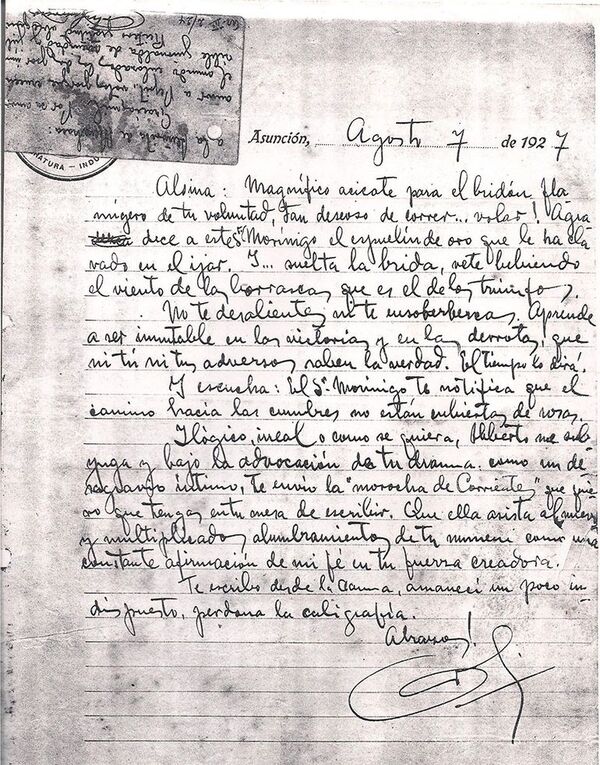 NATURA — INDU
Asunción, Agosto 7 de 1927
Alsina: Magnífico acicate para el bridón fla
mígero de tu voluntad, tan deseoso de correr... volar! Agra
dece a este Sr. Morinigo el espuelín de oro que le ha cla
vado en el ijar. Y... suelta la brida, vete bebiendo
el viento de las borrascas que es el de los triunfos.
No te desalientes ni te ensoberbezcas. Aprende
a ser inmutable en las victorias y en las derrotas, que
ni tú ni tus adversos saben la verdad. El tiempo lo dirá.
Y escucha: El Sr. Morinigo te notifica que el
camino hacia las cumbres no están cubiertas de rosas.
Ilógico, irreal o como se quiera, Huberto me sub
yuga y bajo la advocación de tu drama, como un de
sagravio íntimo, te envío la "morocha de Corrientes" que quie
ro que tengas en tu mesa de escribir. Que ella asista al nuevo
y multiplicados alumbramientos de tu numen como una
constante afirmación de mi fé en tu fuerza creadora.
Te escribo desde la cama, amanecí un poco in
dispuesto, perdona la caligrafía.
Abrazos!